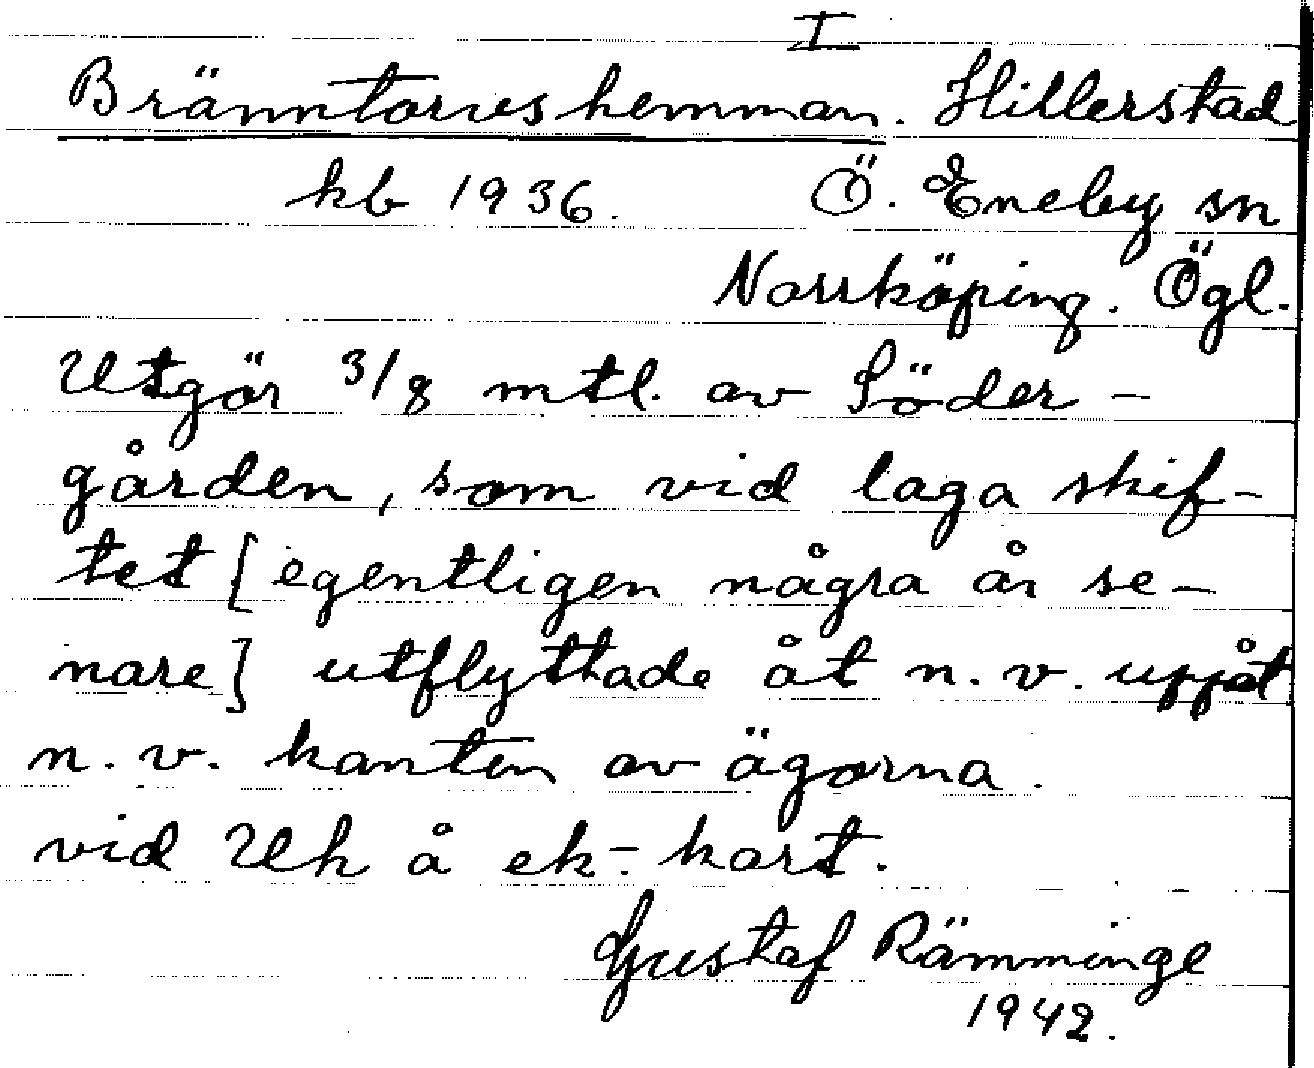 I
Bränntorveshemman. Hillerstad
kb 1936. Ö. Eneby sn
Norrköping. Ögl.
Utgör 3/8 mtl. av Söder-
gården, som vid laga skif-
tet [egentligen några år se-
nare] utflyttade åt n.v. uppåt
n.v. kanten av ägorna.
vid Uk å ek-kart.
Gustaf Rämminge
1942.